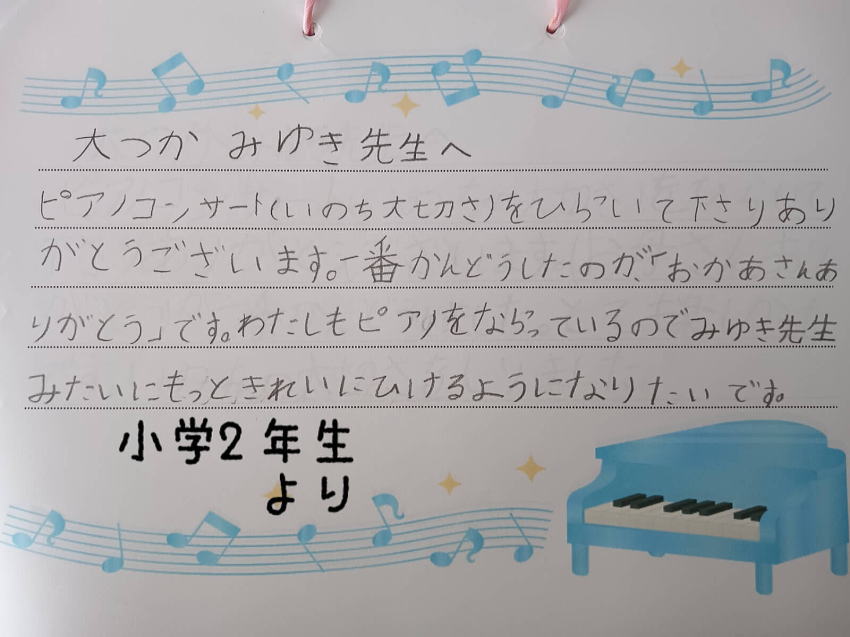 大つか みゆき先生へ
ピアノコンサート(いのち大切さ)をひらいて下さりあり
がとうございます。一番かんどうしたのが、「おかあさんあ
りがとう」です。わたしもピアノをならっているのでみゆき先生
みたいにもっときれいにひけるようになりたいです。
小学2年生
より